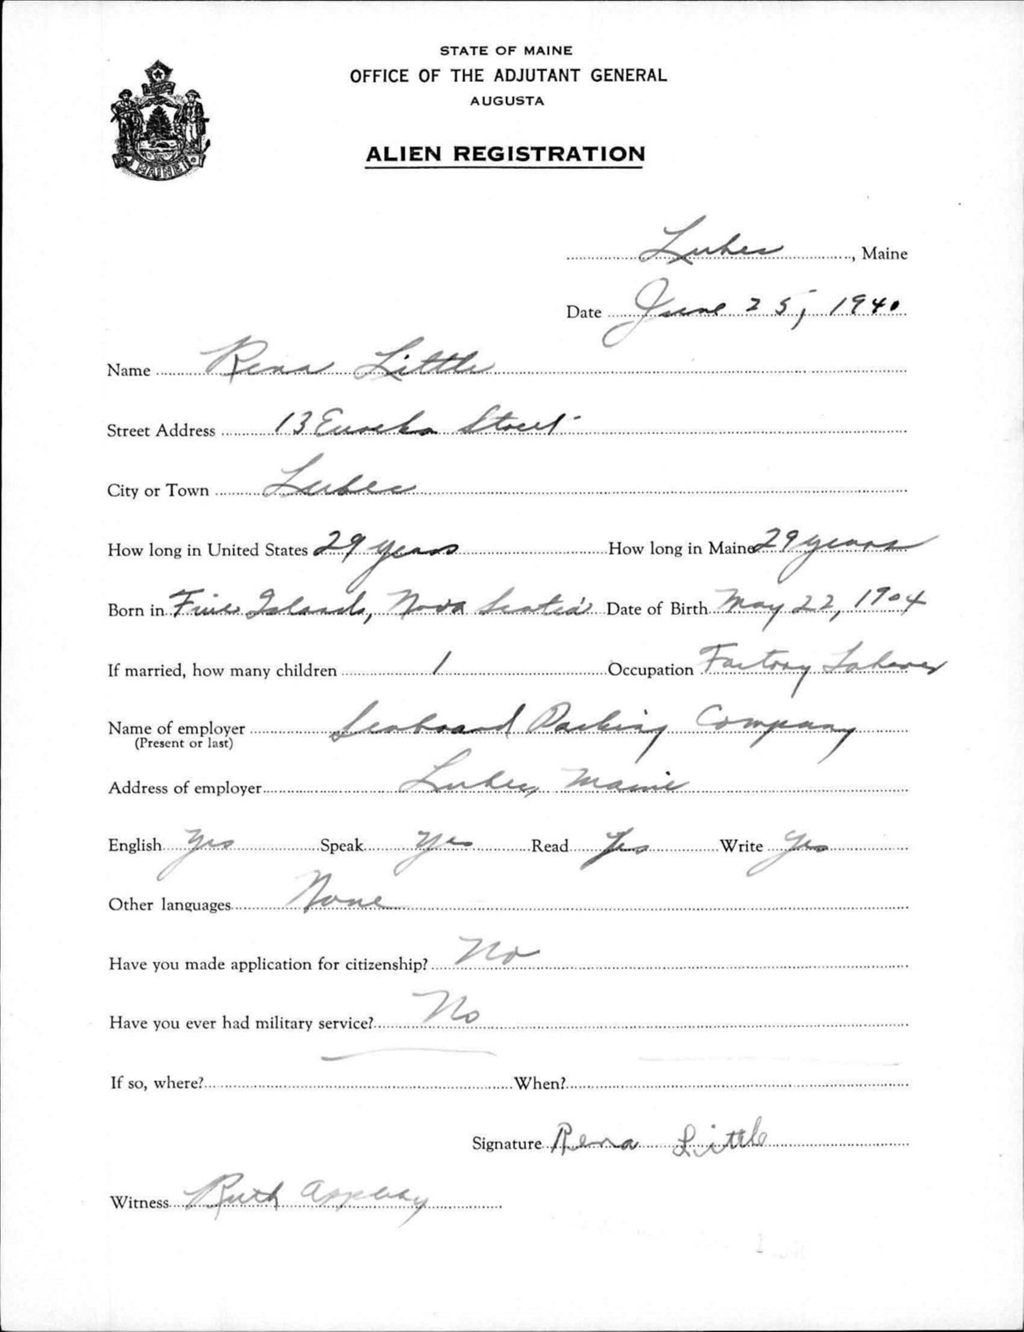 STATE OF MAINE
OFFICE OF THE ADJUTANT GENERAL
AUGUSTA
ALIEN REGISTRATION
MAINE
Lubec, Maine
Date June 25, 1940
Name Rena Little
Street Address 13 Eureka Street
City or Town Lubec
How long in United States 29 years How long in Maine 29 years
Born in Five Islands, Nova Scotia Date of Birth May 22, 1904
If married, how many children 1 Occupation Factory Laborer
Name of employer Seaboard Packing Company
(Present or last)
Address of employer Lubec, Maine
English Yes Speak Yes Read Yes Write Yes
Other languages None
Have you made application for citizenship? No
Have you ever had military service? No
If so, where? When?
Signature Rena Little
Witness Ruth Appleby